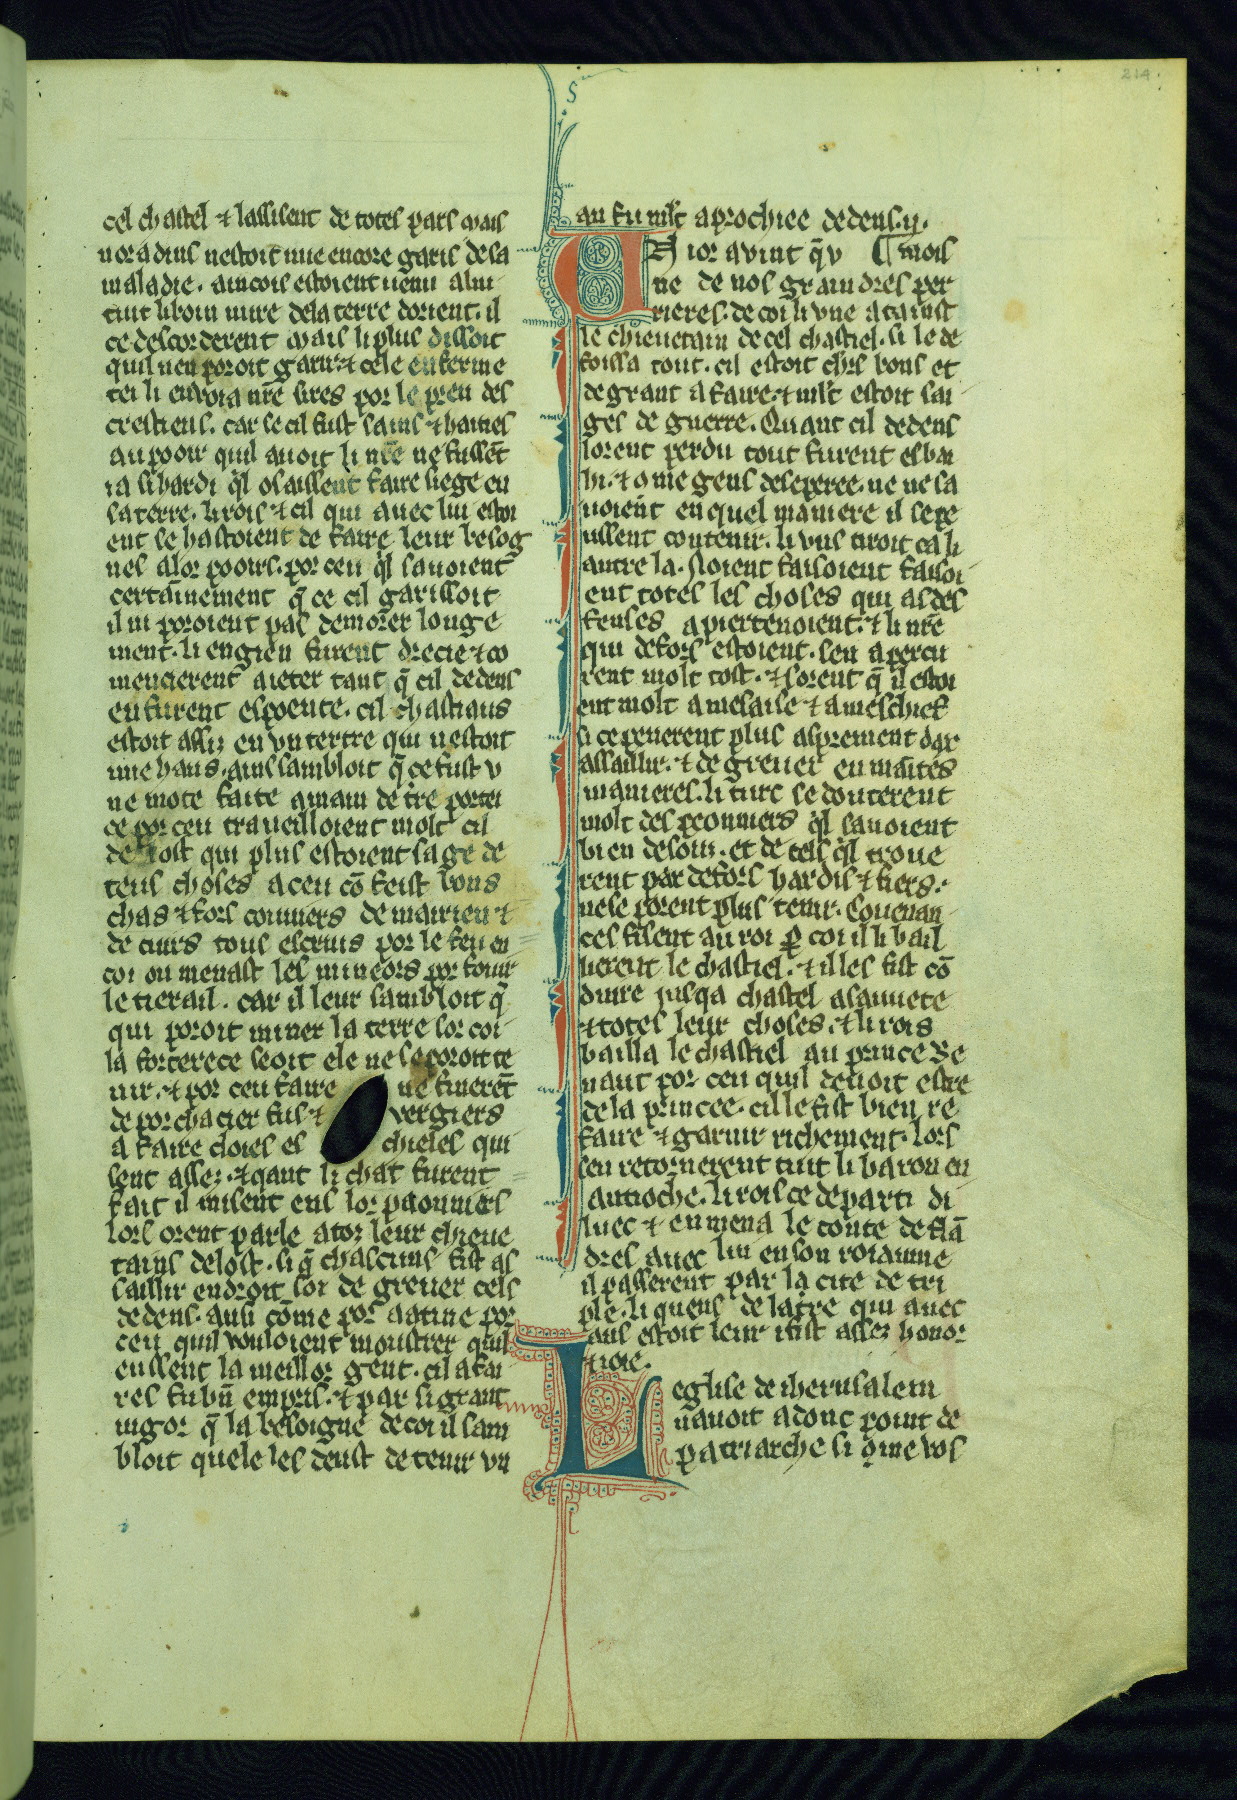 214.
cel chastel ⁊ lassisent de totes pars mais
noradins nestoit mie encore garis de sa
maladie. aincois estoient uenu a lui
tuit li boin mire de la terre dorient. il
ce descorderent mais li plus dissoit
quil nen poroit garir. ⁊ cele enferme
tei li enuoia nr̄e sires por le preu des
crestiens. car se cil fust sains ⁊ haities
au pooir quil auoit li nr̄e ne fussēt
ia si hardi q̄l osaissent faire siege en
sa terre. li rois ⁊ cil qui auec lui estoi
ent se hastoient de faire leur besog
nes a lor pooirs. por ceu q̄l sauoient
certainement q̄ ce cil garissoit
il ni poroient pas demorer longe
ment. li engien furent drecie ⁊ co
mencierent a ieter tant q̄ cil dedens
en furent espoente. cil chastiaus
estoit assis en vn tertre qui nestoit
mie haus. ains sambloit q̄ ce fust v
ne mote faite a main de t̄re portei
ce por ceu traueilloient molt cil
de lost qui plus estoient sage de
teus choses a ceu cō feist bons
chas ⁊ fors couuers de mairien ⁊
de cuirs tous escruis por le feu en
coi on menast les mineors por fouir
le tierail. car il leur sambloit q̄
qui poroit miner la terre sor coi
la forterece seoit ele ne se poroit te
nir. ⁊ por ceu faire ne finerēt
de porchacier fus ⁊ vergiers
a faire cloies es chieles qui
sent assez. ⁊ qant li chat furent
fait il misent ens lor paonniers
lors orent parle a toz leur chieue
tains de lost. si q̄ chascuns fist as
saillir endroit soi de greuer cels
dedens. ausi cōme por aatine por
ceu quil vouloient moustrer quil
eussent la meillor gent. cil afai
res fu bn̄ empris. ⁊ par si grant
uigor q̄ la besoigne de coi il sam
bloit quele les deust detenir vn
an fu ml't aprochiee dedens .ij.
Vn ior auint q̄ v ¶ mois
ne de nos grandres per
rieres. de coi li vne atainst
le chieuetain de cel chastiel. si le de
foissa tout. cil estoit ch'rs bons et
de grant afaire. ⁊ ml't estoit sai
ges de guerre. Quant cil dedens
lorent perdu tout furent esbai
hi. ⁊ ome gens deseperee. ne ne sa
uoient en quel maniere il se pe
ussent contenir. li vns tiroit ca li
autre la. Noient faisoient faisoi
ent totes les choses qui as des
fenses apiertenoient. ⁊ li nr̄e
qui defors estoient. sen apercu
rent molt tost. ⁊ sorent q̄ il estoi
ent molt a mesaise ⁊ a meschief
si ce penerent plus asprement dax
assaillir. ⁊ de greuer en maītes
manieres. li turc se douterent
molt des peonniers q̄l sauoient
bien desouz. et de tels q̄l troue
rent par defors hardis ⁊ fiers.
ne se porent plus tenir. Couenan
ces fisent au roi p̱ coi il li bail
lierent le chastiel. ⁊ il les fist cō
duire iusqa chastel a sauuete
⁊ totes leur choses. ⁊ li rois
bailla le chastiel au prince Be
naut por ceu quil deuoit estre
de la princee. cil le fist bien re
faire ⁊ garnir richement. lors
sen retornerent tuit li baron en
antioche. li rois ce departi di
luec ⁊ enmena le conte de flā
dres auec lui en son roiaume
il passerent par la cite de tri
ple. li quens de la t̄re qui auec
aus estoit leur i fist assez honor
⁊ ioie.
Leglise de iherusalem
nauoit adonc point de
patriarche si ꝯme vos